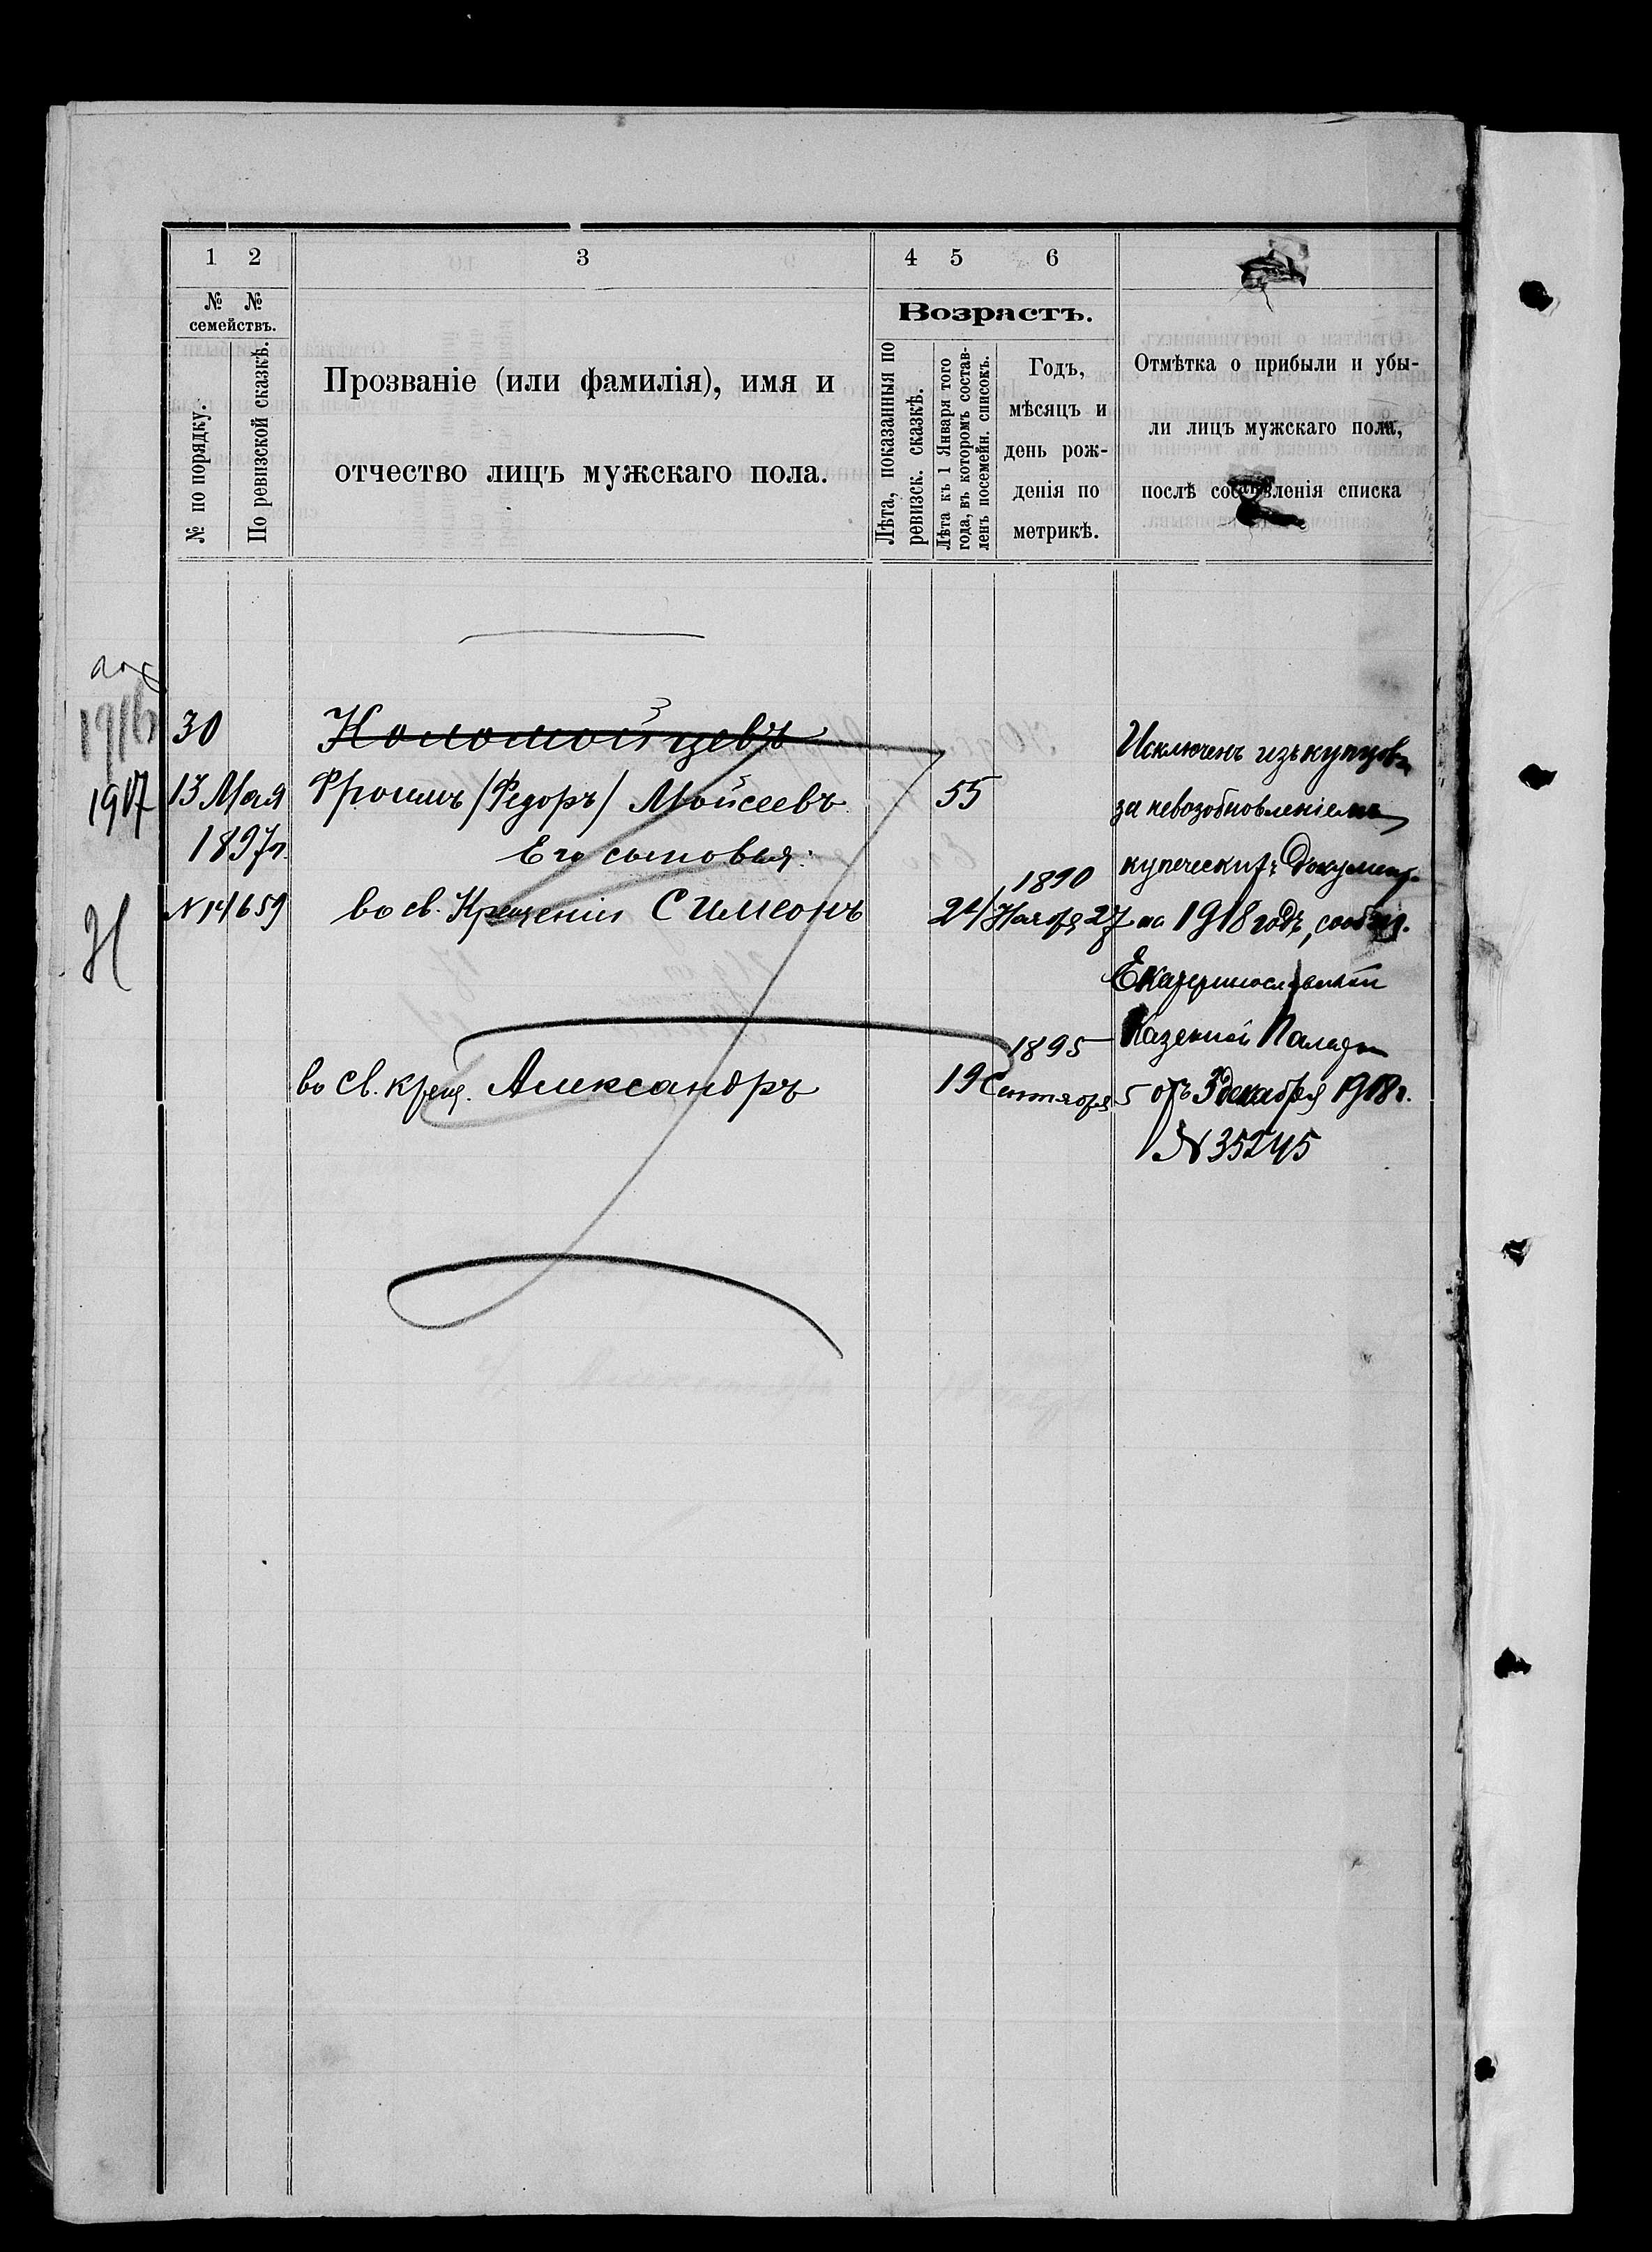 1 2 3 4 5 6
№ №
семействъ.
№ по порядку.
По ревизской сказкѣ.
Прозваніе (или фамилія), имя и
отчество лицъ мужскаго пола.
Возрастъ.
Лѣта, показанныя по
ревизск. сказкѣ.
Лѣта къ 1 Января того
года, въ которомъ состав-
ленъ посемейн. списокъ.
Годъ,
мѣсяцъ и
день рож-
денія по
метрикѣ.
Отмѣтка о прибыли и убы-
ли лицъ мужскаго пола,
послѣ составленія списка
1916
1917
30
13 Мая
1897г.
N 14659
Коломойцевъ
Фроимъ /Федоръ/ Мойсеевъ 55
Его сыновья:
во св. Крещеніи Симеонъ 24
1890
Ноября 27
во св. крещ. Александръ 19
1895
Сентября 5
Исключенъ изъ купцовъ
за невозобновленіемъ
купеческихъ докумен.
на 1918 годъ, сообщ.
Екатеринославской
Казенной Палаты
отъ 3 декабря 1918г.
N 35245